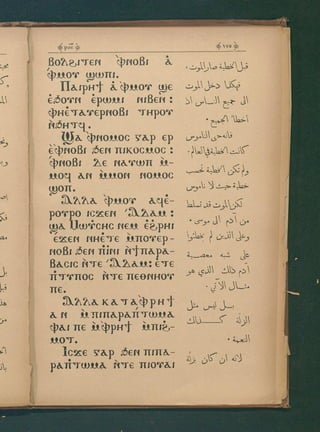 ١٧٥
ⲃⲟⲗϩⲓⲧⲉⲛ ⲫⲛⲟⲃⲓ ⲁ̀
ⲫⲙⲟⲩ ϣⲱⲡⲓ.
Ⲡⲁⲓⲣⲏϯ ⲁ̀ ⲫⲙⲟⲩ ϣⲉ
ⲉϧⲟⲩⲛ ⲉⲣⲱⲙⲓ ⲛⲓⲃⲉⲛ:
ⲫⲏⲉⲧⲁⲩⲉⲣⲛⲟⲃⲓ ⲧⲏⲣⲟⲩ
ⲛ̀ϧⲏⲧϥ.
Ϣⲁ ⲫⲛⲟⲙⲟⲥ ⲅⲁⲣ ⲉⲣ
ⲉⲫⲛⲟⲃⲓ ϧⲉⲛ ⲡⲓⲕⲟⲥⲙⲟⲥ:
ⲫⲛⲟⲃⲓ ⲇⲉ ⲛⲁⲧⲱⲡ ⲙ̀-
ⲙⲟϥ ⲁⲛ ⲙ̀ⲙⲟⲛ ⲛⲟⲙⲟⲥ
ϣⲟⲡ.
Ⲁⲗⲗⲁ ⲫⲙⲟⲩ ⲁϥⲉ̀-
ⲣⲟⲩⲣⲟ ⲓⲥϫⲉⲛ Ⲁⲇⲁⲙ:
ϣⲁ Ⲙⲱⲩⲥⲏⲥ ⲛⲉⲙ ⲉ̀ϩⲣⲏⲓ
ⲉϫⲉⲛ ⲛⲏⲉⲧⲉ ⲙ̀ⲡⲟⲩⲉⲣ-
ⲛⲟⲃⲓ ϧⲉⲛ ⲡⲓⲛⲓ ⲛ̀ϯⲡⲁⲣⲁ-
ⲃⲁⲥⲓⲥ ⲛ̀ⲧⲉ Ⲁⲇⲁⲙ: ⲉ̀ⲧⲉ
ⲡ̀ⲧⲩⲡⲟⲥ ⲛ̀ⲧⲉ ⲡⲉⲑⲛⲏⲟⲩⲧ
ⲡⲉ.
Ⲁⲗⲗⲁ ⲕⲁⲧⲁⲫⲣⲏϯ
ⲁⲛ ⲙ̀ⲡⲓⲡⲁⲣⲁⲡⲧⲱⲙⲁ
ⲫⲁⲓ ⲡⲉ ⲙ̀ⲫⲣⲏϯ ⲙ̀ⲡⲓϩ̀-
ⲙⲟⲧ.
Ⲓⲥϫⲉ ⲅⲁⲣ ϧⲉⲛ ⲡⲓⲡⲁ-
ⲣⲁⲡⲧⲱⲙⲁ ⲛ̀ⲧⲉ ⲡⲓⲟⲩⲁⲓ
قبل الخطية صار الموت.
فهكذا دخل الموت
الى جميع الناس اذ
اخطأ الجميع.
فانه حتى الناموس
كانت الخطية في العالم.
ولم تكن الخطية تحسب
خطية حيث لا ناموس
لكن الموت قد تسلط
من آدم الى موسى.
وعلى الذين لم يخطئوا
على شبه معصية
آدم ذلك الذي هو
مثال الآتي.
بل ليس مثل
الزلة كذلك
النعمة.
لانه ان كان بزلة